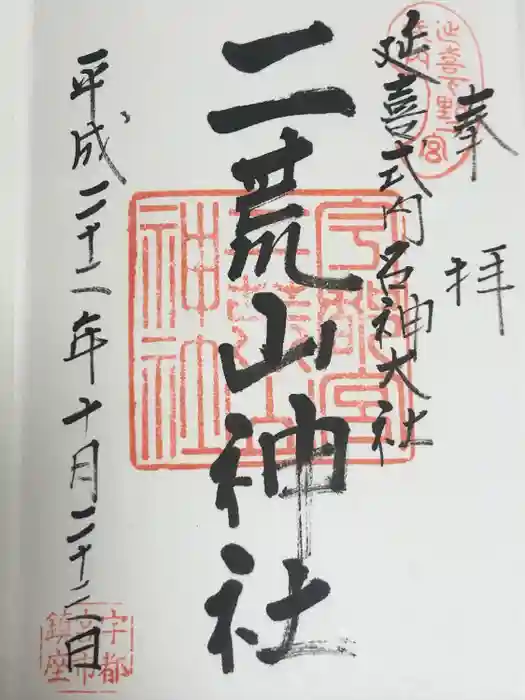 奉拝
延喜式内名神大社
二荒山神社
平成二十二年十月二十二日
宇都宮
二荒山
神社
宇都
宮市
鎮座